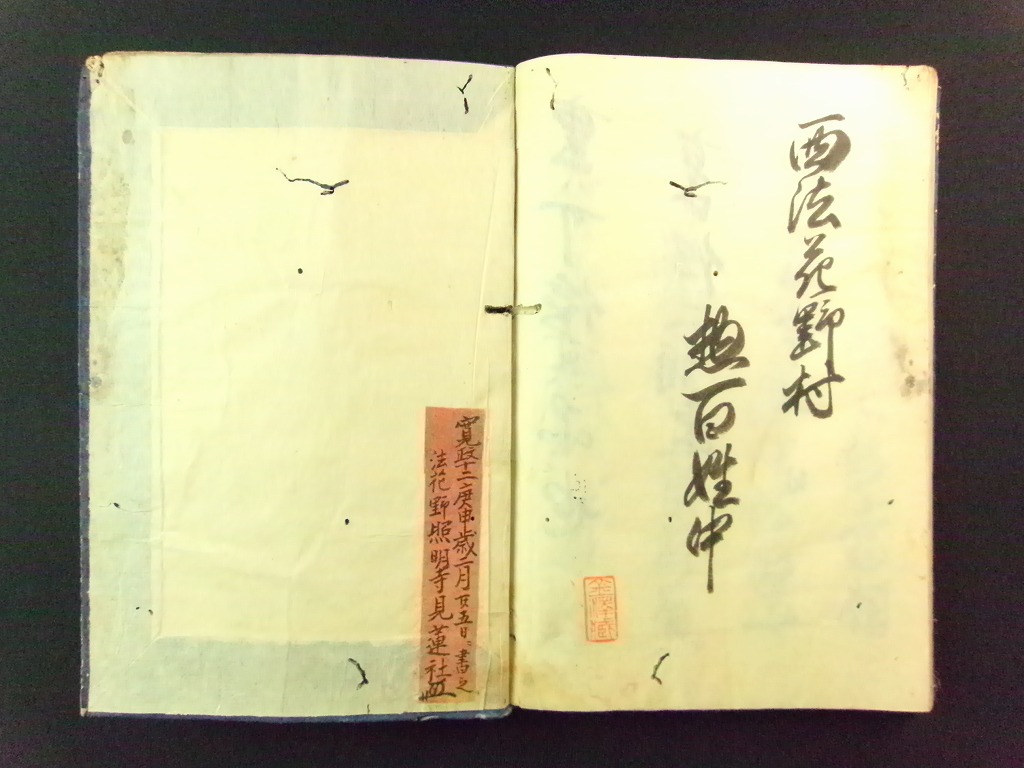 西法花野村
惣百姓中
寛政十二庚申歳二月廿五日ニ書之
法花野照明寺見蓮社